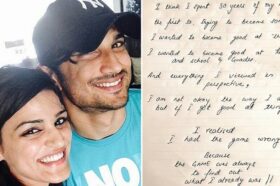 I think I spent 30 years of my
the first to, trying to become som
I wanted to become good at
I wanted to become good at
and school & Grades
And everything I viewed in
perspective,
I am not okay the way I a
but if I get good at thing
I realised
I had the game wrong
Because
the GAME was always
to find out
what I already was !!